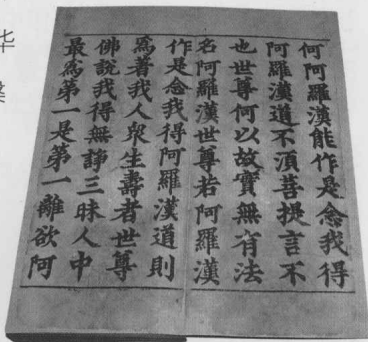 何阿羅漢能作是念我得
阿羅漢道不湏菩提言不
也世尊何以故實無有法
名阿羅漢世尊若阿羅漢
作是念我得阿羅漢道則
爲著我人衆生壽者世尊
佛說我得無諍三昧人中
最爲第一是第一離欲阿
华